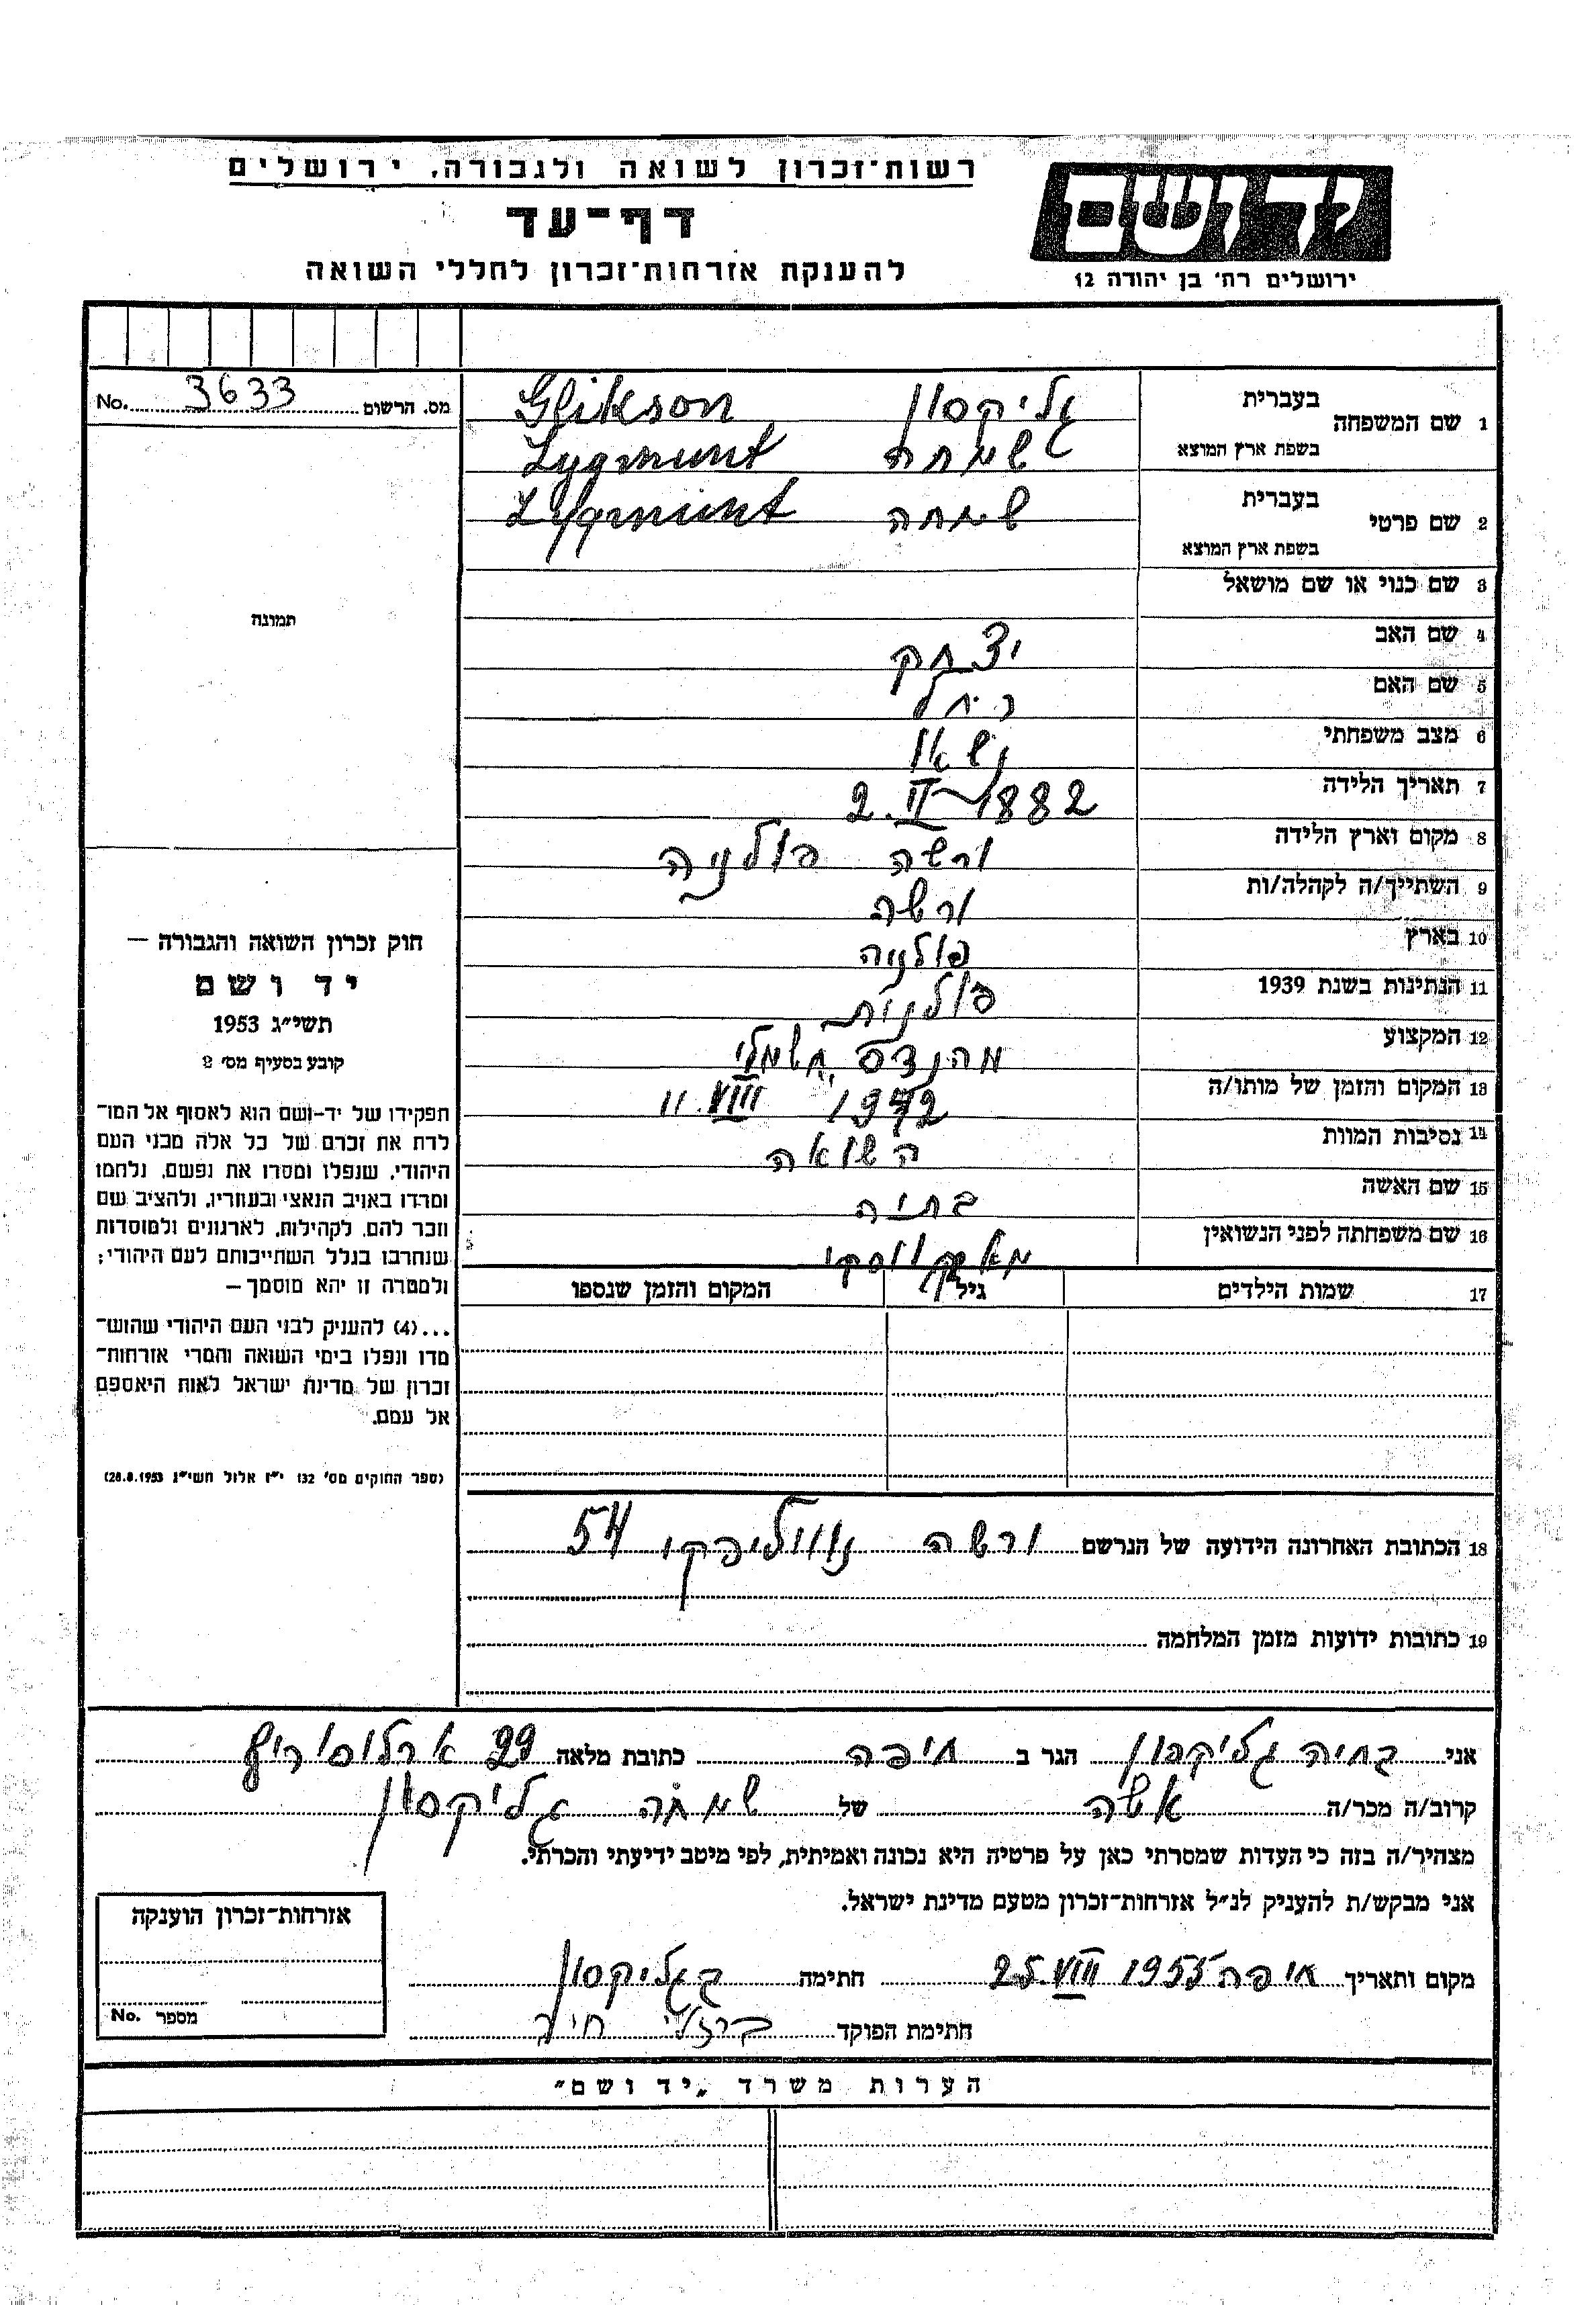 רשות־זכרון לשואה ולגבורה, ירושלים
דף־עד
להענקת אזרחות־זכרון לחללי השואה
יד ושם
ירושלים רח׳ בן יהודה 12
מס. הרשום 3633 No.
תמונה
חוק זכרון השואה והגבורה —
יד ושם
תשי״ג 1953
קובע בסעיף מס׳ 2
תפקידו של יד-ושם הוא לאסוף אל המו־
לדת את זכרם של כל אלה מבני העם
היהודי, שנפלו ומסרו את נפשם, נלחמו
ומרדו באויב הנאצי ובעוזריו, ולהציב שם
וזכר להם, לקהילות, לארגונים ולמוסדות
שנחרבו בגלל השתייכותם לעם היהודי;
ולמטרה זו יהא מוסמך —
...(4) להעניק לבני העם היהודי שהוש־
מדו ונפלו בימי השואה והמרי אזרחות־
זכרון של מדינת ישראל לאות היאספם
אל עמם.
(ספר החוקים מס׳ 132 י״ז אלול תשי״ג 28.8.1953)
1 שם המשפחה בעברית גליקסון Glikson
בשפת ארץ המוצא שמחה Zygmunt
2 שם פרטי בעברית שמחה Zygmunt
בשפת ארץ המוצא
3 שם כנוי או שם מושאל
4 שם האב יצחק
5 שם האם רחל
6 מצב משפחתי נשאוי
7 תאריך הלידה 2.II 1882
8 מקום וארץ הלידה ורשה פולניה
9 השתייך/ה לקהלה/ות ורשה
10 בארץ פולניה
11 הנתינות בשנת 1939 פולנית
12 המקצוע מהנדס חשמלי
13 המקום והזמן של מותו/ה 11.VIII 1942
14 נסיבות המוות השואה
15 שם האשה בתיה
16 שם משפחתה לפני הנשואין
17 שמות הילדים גיל המקום והזמן שנספו
18 הכתובת האחרונה הידועה של הנרשם ורשה נווליפקי 54
19 כתובות ידועות מזמן המלחמה
אני בתיה גליקסון הגר ב חיפה כתובת מלאה 29 ארלוסורוף
קרוב/ה מכר/ה אשה של שמחה גליקסון
מצהיר/ה בזה כי העדות שמסרתי כאן על פרטיה היא נכונה ואמיתית, לפי מיטב ידיעתי והכרתי.
אני מבקש/ת להעניק לנ״ל אזרחות־זכרון מטעם מדינת ישראל.
מקום ותאריך חיפה 25.VIII 1955 חתימה בגליקסון
חתימת הפוקד ברזלי
אזרחות־זכרון הוענקה
מספר No.
הערות משרד „יד ושם״